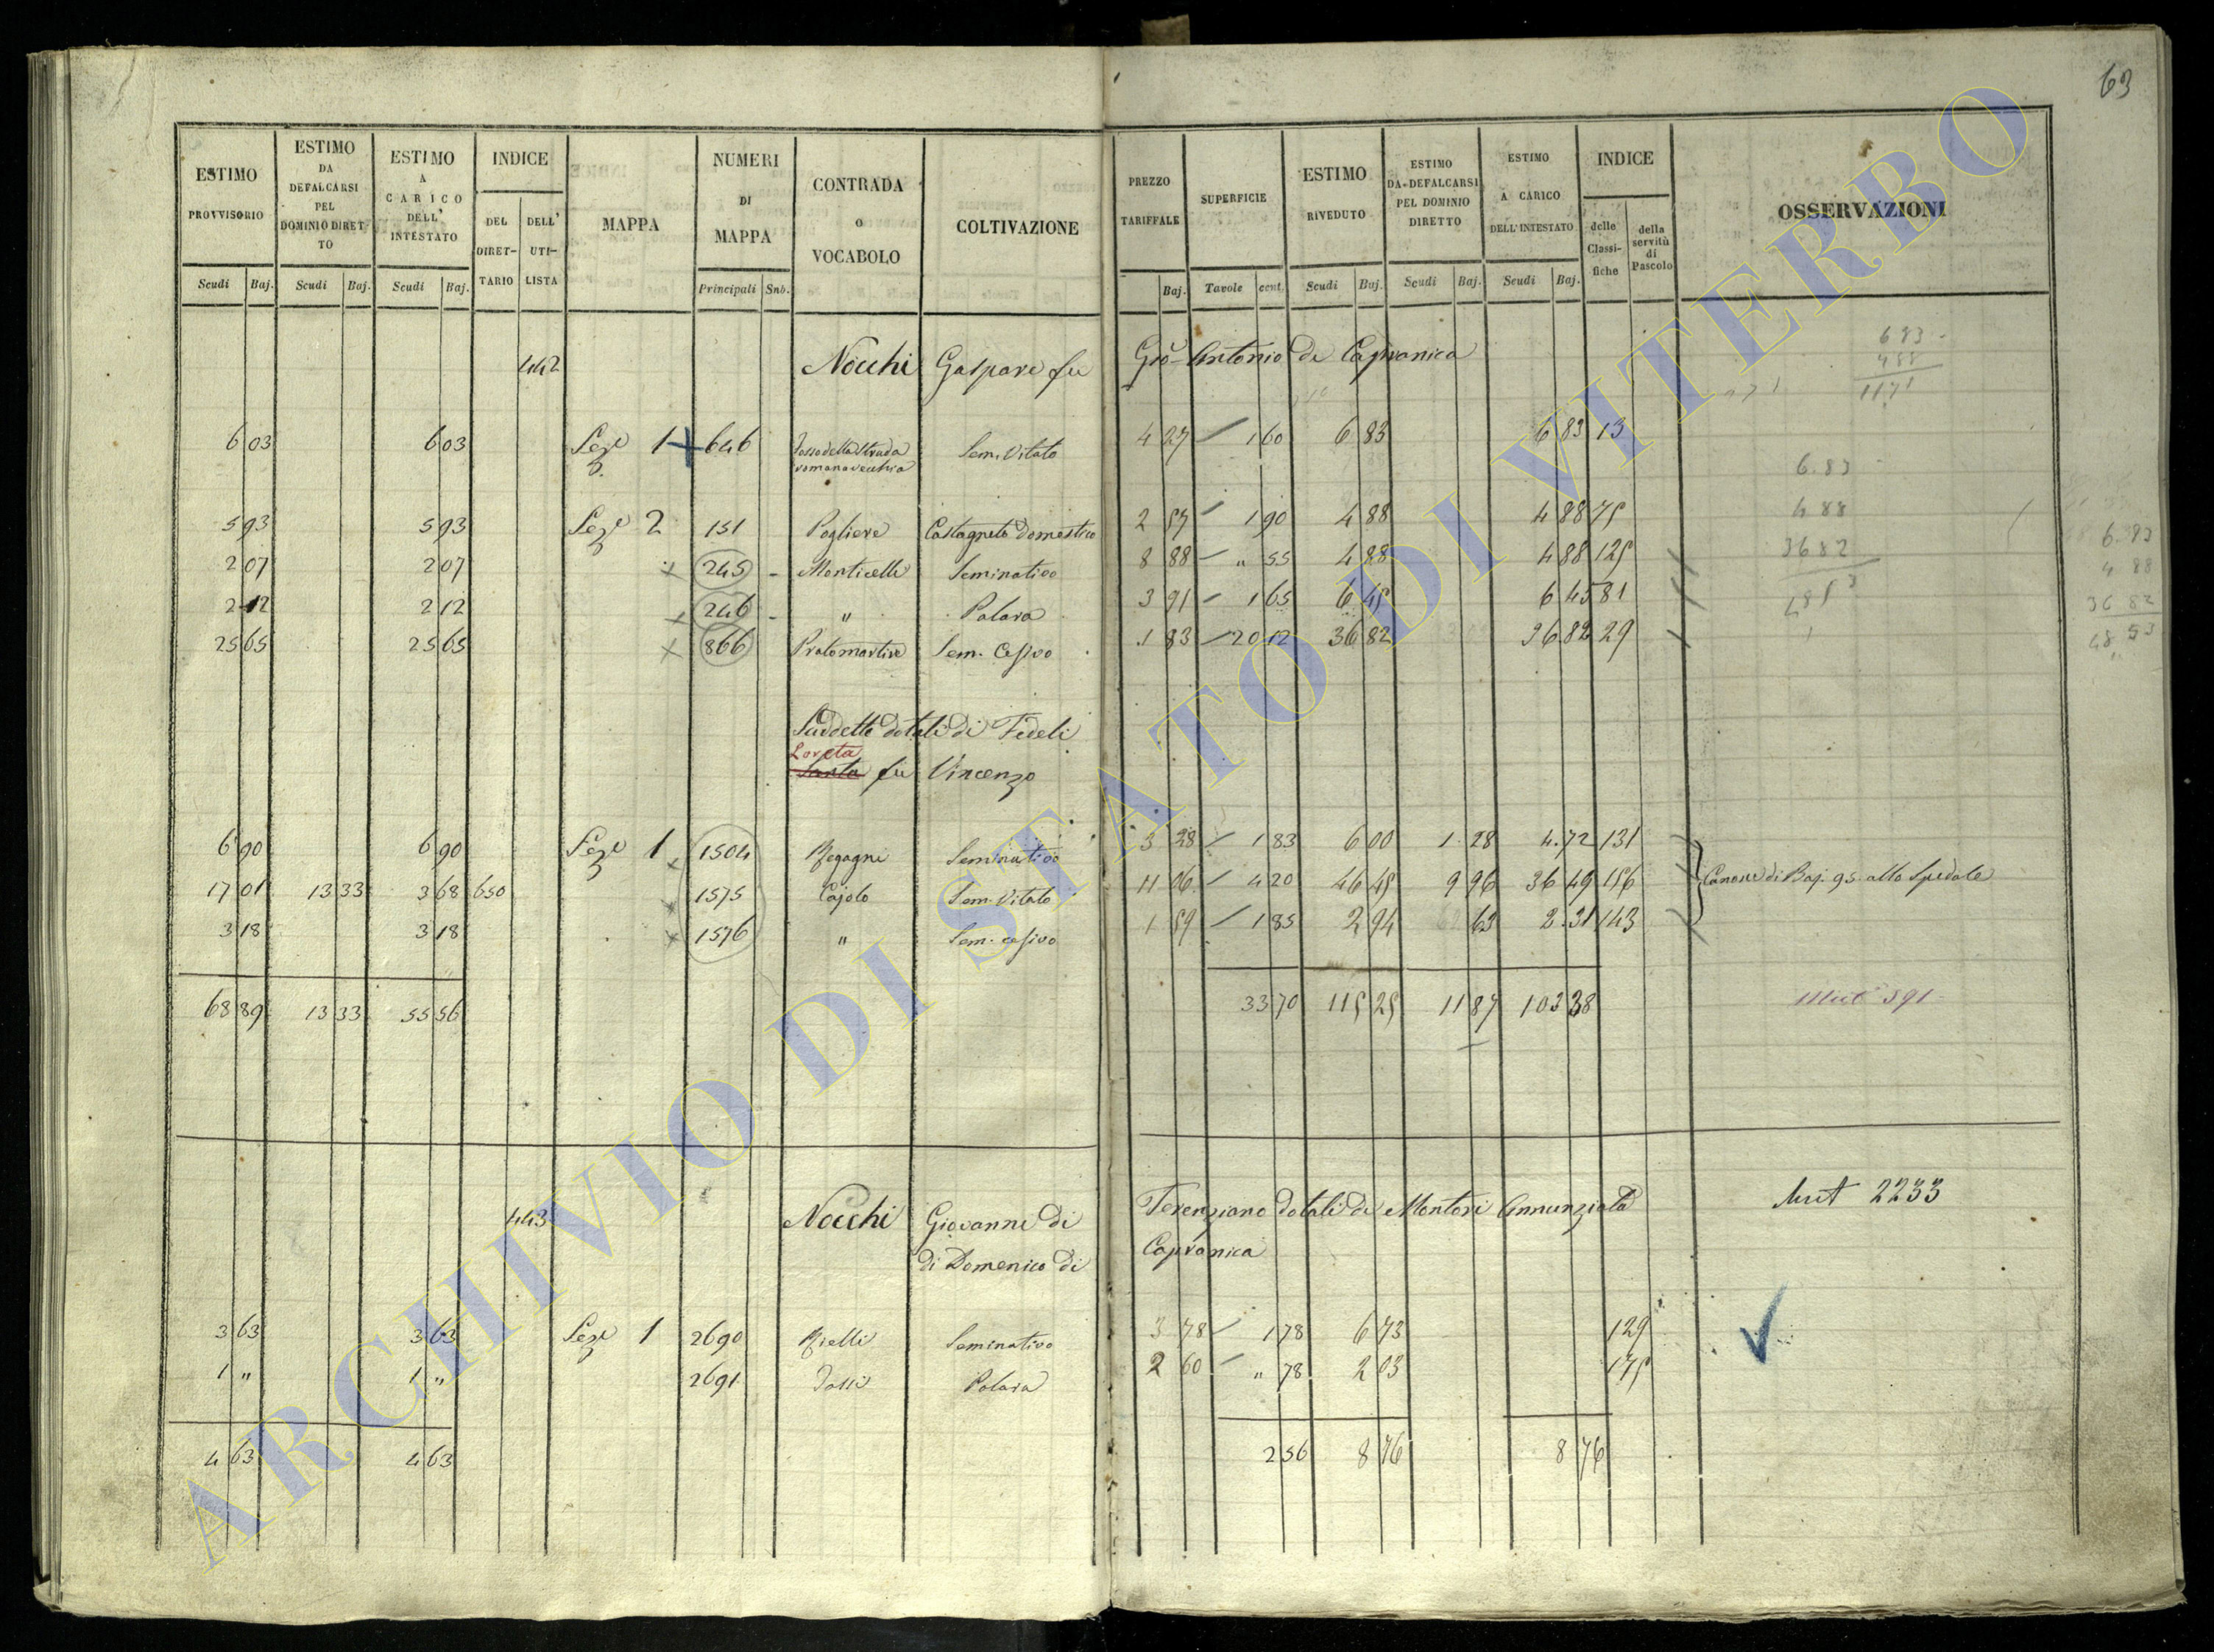 63
ESTIMO PROVVISORIO | ESTIMO DA DEFALCARSI PEL DOMINIO DIRETTO | ESTIMO A CARICO DELL' INTESTATO | INDICE DEL DIRETTARIO | DELL' UTILISTA | MAPPA | NUMERI DI MAPPA | CONTRADA o VOCABOLO | COLTIVAZIONE | PREZZO TARIFFALE | SUPERFICIE | ESTIMO RIVEDUTO | ESTIMO DA DEFALCARSI PEL DOMINIO DIRETTO | ESTIMO A CARICO DELL' INTESTATO | INDICE delle Classifiche | della servitù di Pascolo | OSSERVAZIONI
Scudi Baj. | Scudi Baj. | Scudi Baj. | Principali Sub. | Baj. | Tavole cent. | Scudi Baj. | Scudi Baj. | Scudi Baj.
442 Nocchi Gaspare fu Gio Antonio di Capranica
6 83
4 88
11 71
6 03 | 6 03 | Sez.e 1 | 646 | Fosso della Strada romana vecchia | Sem. Vitato | 4 27 | 1 60 | 6 83 | 6 83 | 13
5 93 | 5 93 | Sez.e 2 | 151 | Pogliere | Castagneto domestico | 2 57 | 1 90 | 4 88 | 4 88 | 75
2 07 | 2 07 | 245 | Monticelli | Seminativo | 8 88 | " 55 | 4 88 | 4 88 | 125
2 12 | 2 12 | 246 | " | Polara | 3 91 | 1 65 | 6 45 | 6 45 | 81
25 65 | 25 65 | 866 | Pratomartire | Sem. Cesivo | 1 83 | 20 12 | 36 82 | 36 82 | 29
6.83
4 88
36 82
48 53
6.83
4 88
36 82
48 53
Suddetto dotali di Fedeli
Loreta
Santa fu Vincenzo
6 90 | 6 90 | Sez.e 1 | 1504 | Regagni | Seminativo | 3 28 | 1 83 | 6 00 | 1 28 | 4.72 | 131
17 01 | 13 33 | 3 68 | 650 | 1575 | Cajolo | Sem. Vitato | 11 06 | 4 20 | 46 45 | 9 96 | 36 49 | 156 | Canone di Baj. 95 allo Spedale
3 18 | 3 18 | 1576 | " | Sem. cesivo | 1 59 | 1 85 | 2 94 | 63 | 2.31 | 143
68 89 | 13 33 | 55 56 | 33 70 | 115 25 | 11 87 | 103 38 | Mut 591
443 Nocchi Giovanni di Terenziano dotali di Montori Annunziata
di Domenico di Capranica
Mut 2233
3 63 | 3 63 | Sez.e 1 | 2690 | Rielli | Seminativo | 3 78 | 1 78 | 6 73 | 129
1 " | 1 " | 2691 | Fossi | Polara | 2 60 | " 78 | 2 03 | 175
4 63 | 4 63 | 2 56 | 8 76 | 8 76
ARCHIVIO DI STATO DI VITERBO